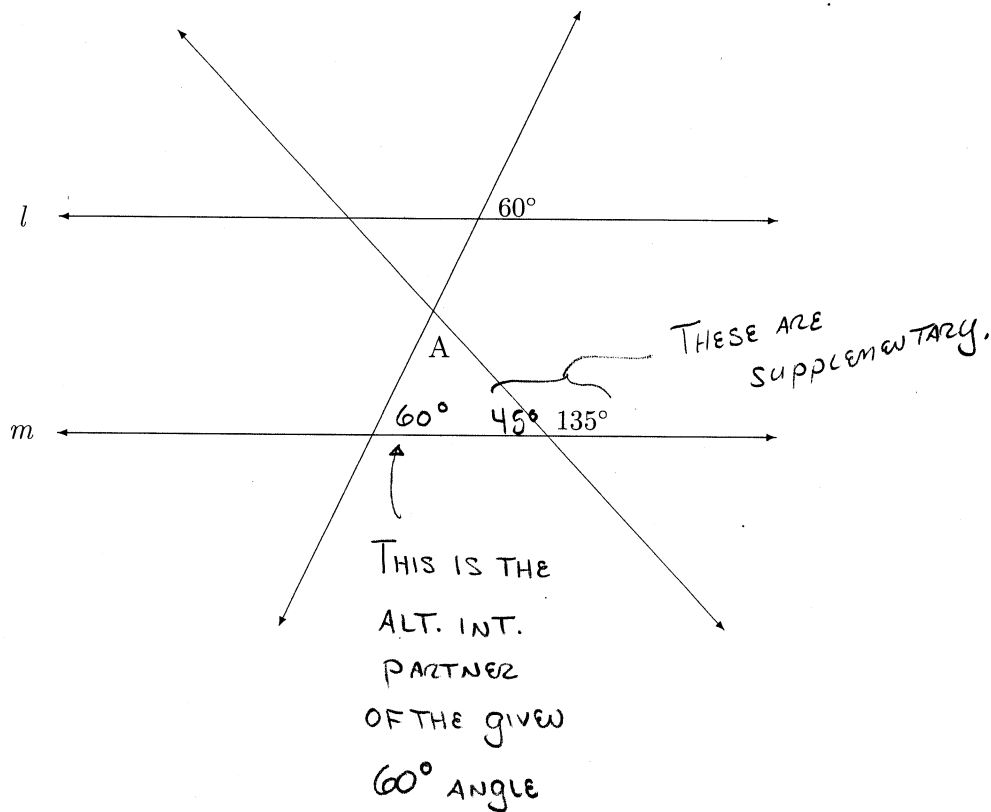 l
60°
THESE ARE
SUPPLEMENTARY.
A
60° 45° 135°
m
THIS IS THE
ALT. INT.
PARTNER
OF THE GIVEN
60° ANGLE